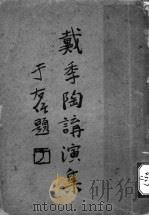 戴季陶講演集
于右任題